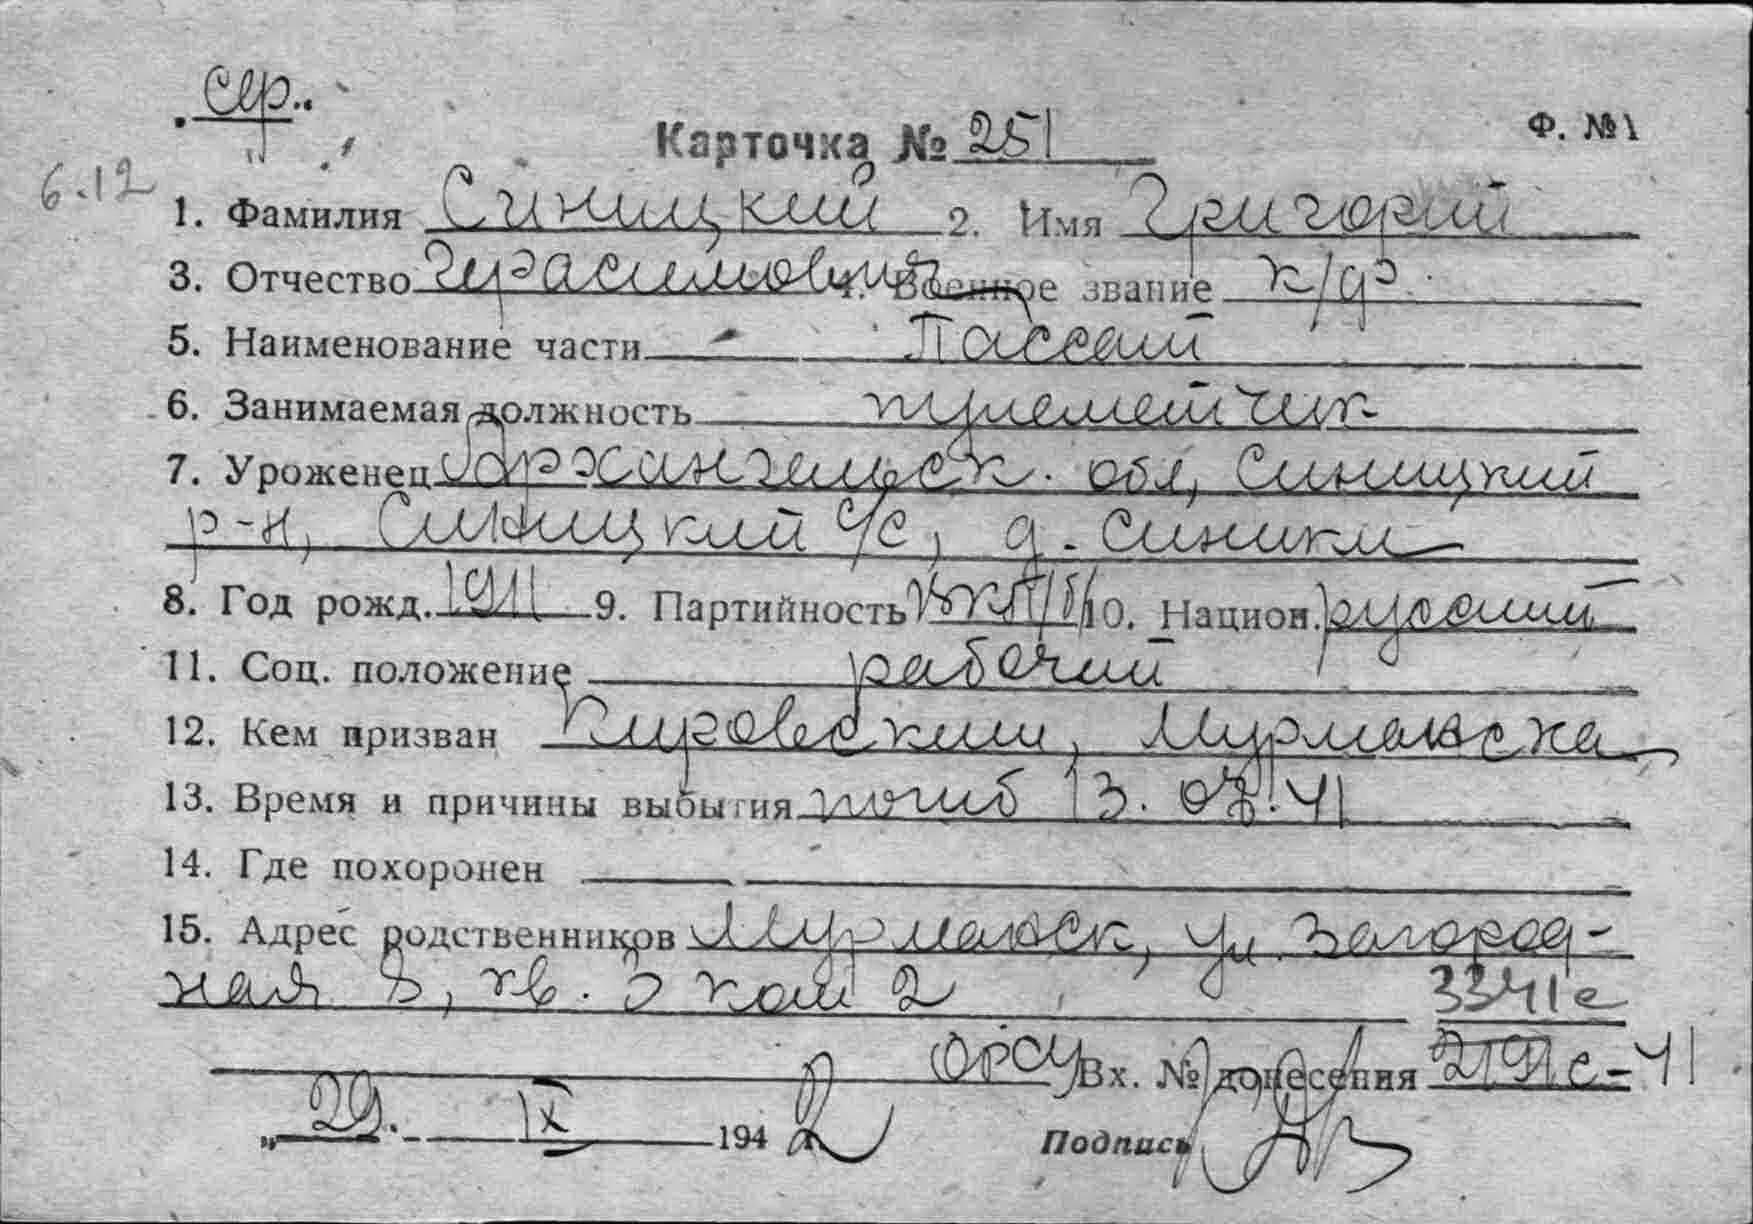 сер..
Карточка № 251
Ф. №1
6.12
1. Фамилия Синицкий 2. Имя Григорий
3. Отчество Герасимович 4. Военное звание к/ф
5. Наименование части Пассат
6. Занимаемая должность пулеметчик
7. Уроженец Архангельск. обл, Синицкий
р-н, Синицкий с/с, д. Синики
8. Год рожд. 1911 9. Партийность ВКП/б/ 10. Национ. русский
11. Соц. положение рабочий
12. Кем призван Кировским, Мурманска
13. Время и причины выбытия погиб 13.07.41
14. Где похоронен
15. Адрес родственников Мурманск, ул. Загород-
ная 8, кв. 3 ком 2
3341с
ОРСУ Вх. № донесения 2191с-41
„29. IX 1942
Подпись